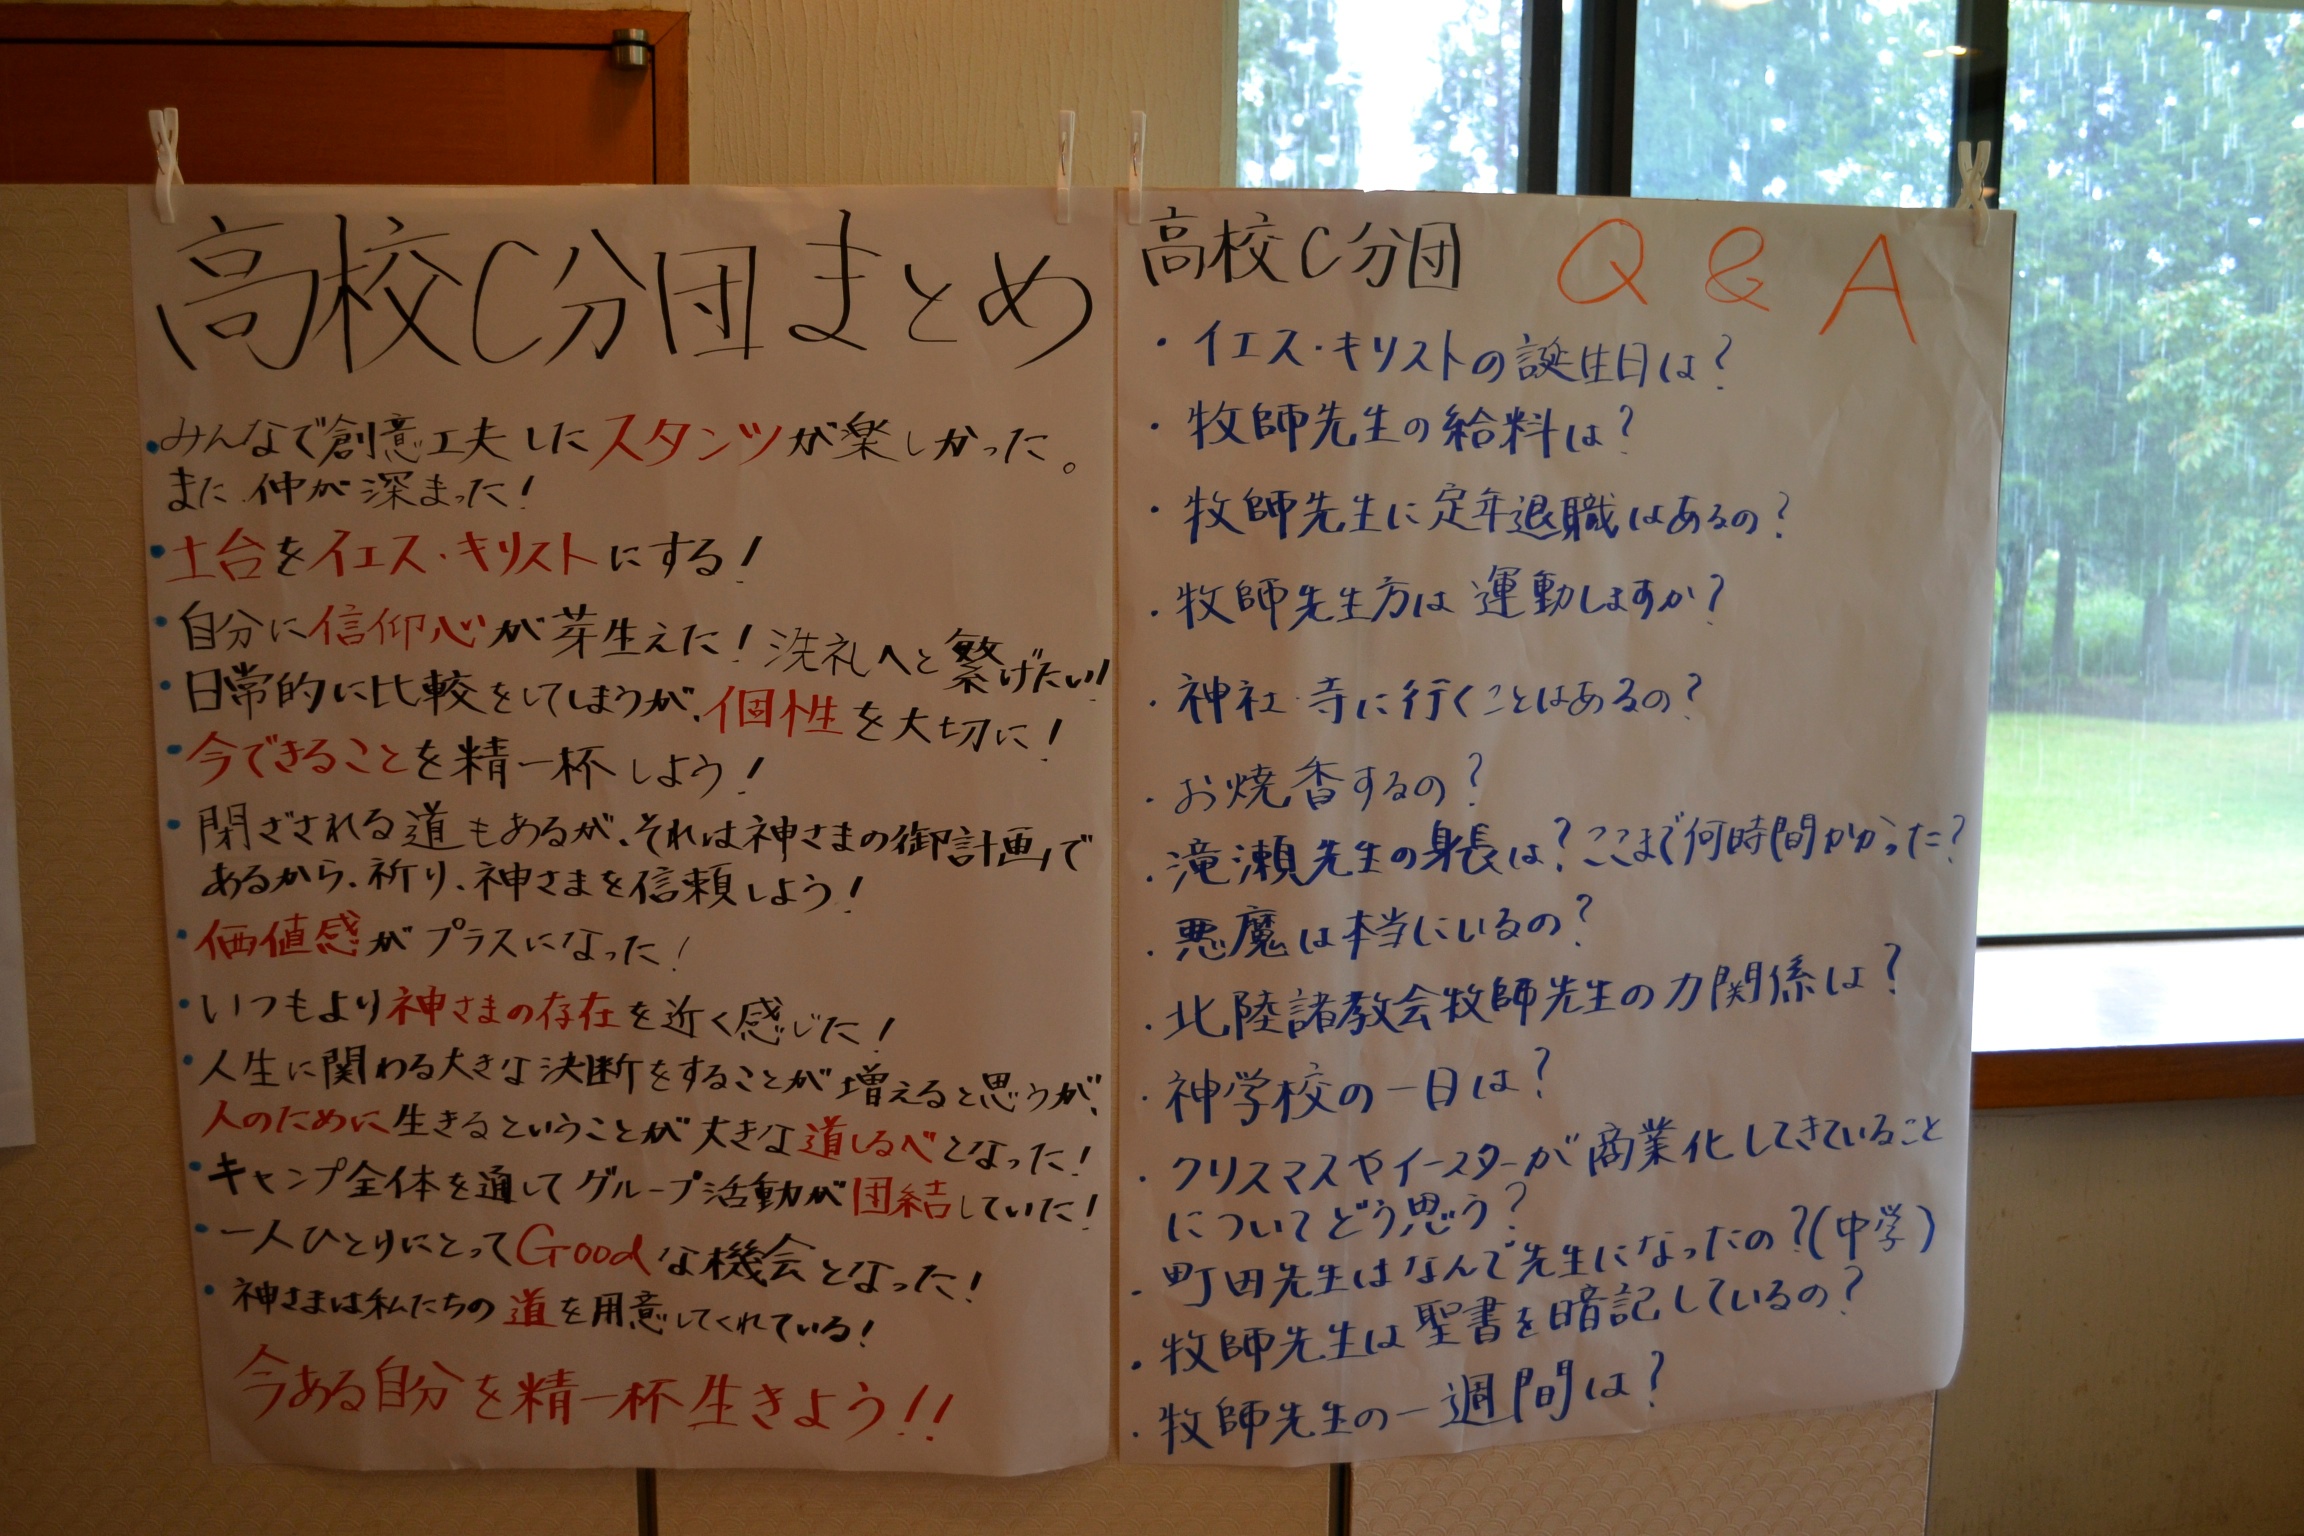 高校C分団まとめ
・みんなで創意工夫したスタンツが楽しかった。
また仲が深まった！
・土台をイエス・キリストにする！
・自分に信仰心が芽生えた！洗礼へと繋げたい！
・日常的に比較をしてしまうが、個性を大切に！
・今できることを精一杯しよう！
・閉ざされる道もあるが、それは神さまの御計画で
あるから、祈り、神さまを信頼しよう！
・価値感がプラスになった！
・いつもより神さまの存在を近く感じた！
・人生に関わる大きな決断をすることが増えると思うが、
人のために生きるということが大きな道しるべとなった！
・キャンプ全体を通してグループ活動が団結していた！
・一人ひとりにとってGoodな機会となった！
・神さまは私たちの道を用意してくれている！
今ある自分を精一杯生きよう！！
高校C分団 Q & A
・イエス・キリストの誕生日は？
・牧師先生の給料は？
・牧師先生に定年退職はあるの？
・牧師先生方は運動しますか？
・神社・寺に行くことはあるの？
・お焼香するの？
・滝瀬先生の身長は？ここまで何時間かかった？
・悪魔は本当にいるの？
・北陸諸教会牧師先生の力関係は？
・神学校の一日は？
・クリスマスやイースターが商業化してきていること
についてどう思う？
・町田先生はなんで先生になったの？(中学)
・牧師先生は聖書を暗記しているの？
・牧師先生の一週間は？